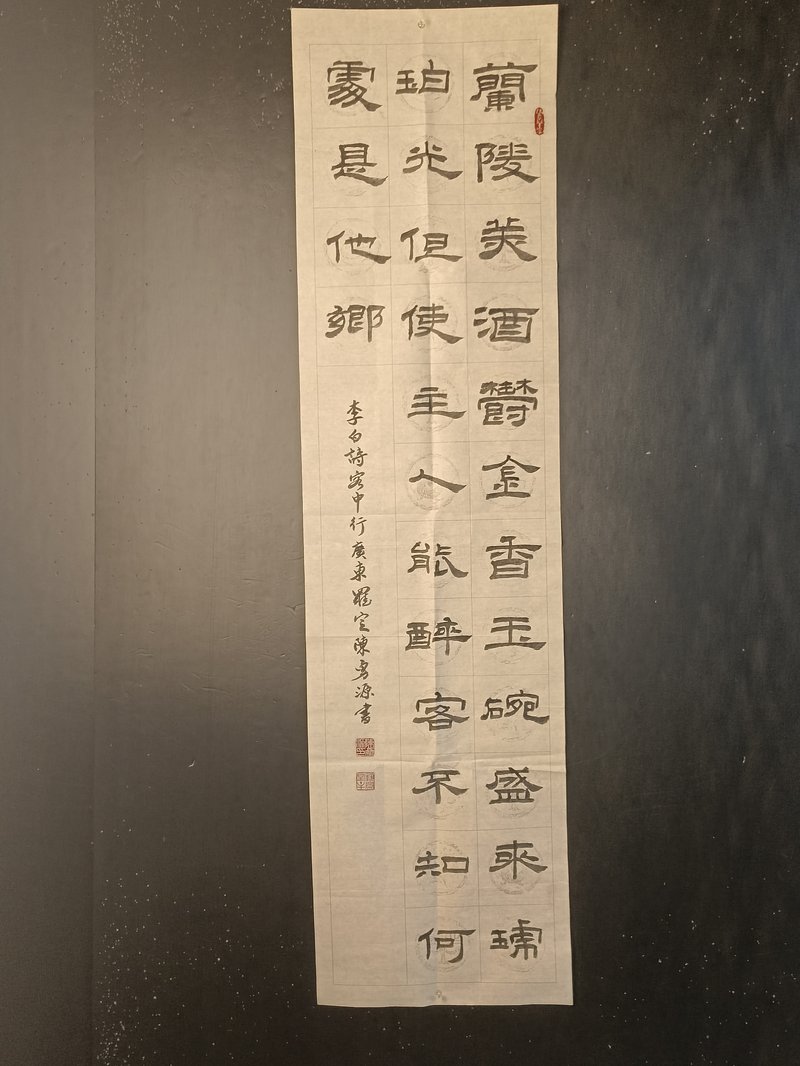 蘭陵美酒欝金香玉碗盛來琥
珀光但使主人能醉客不知何
處是他鄉
李白詩客中行廣東羅定陳勇源書